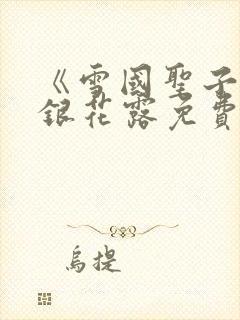 《雪國聖子
銀花露免費
烏提